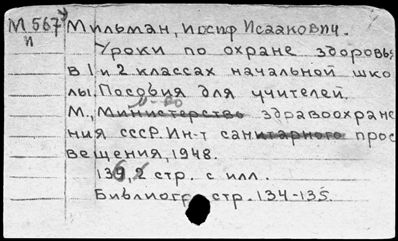 М 567 Мильман, Иосиф Исаакович.
п Уроки по охране здоровья
в 1 и 2 классах начальной шко
лы. Пособия для учителей.
М., М-во здравоохране
ния СССР. Ин-т сан. прос
вещения, 1948.
136, 2 стр. с илл.
Библиогр. стр. 134-135.